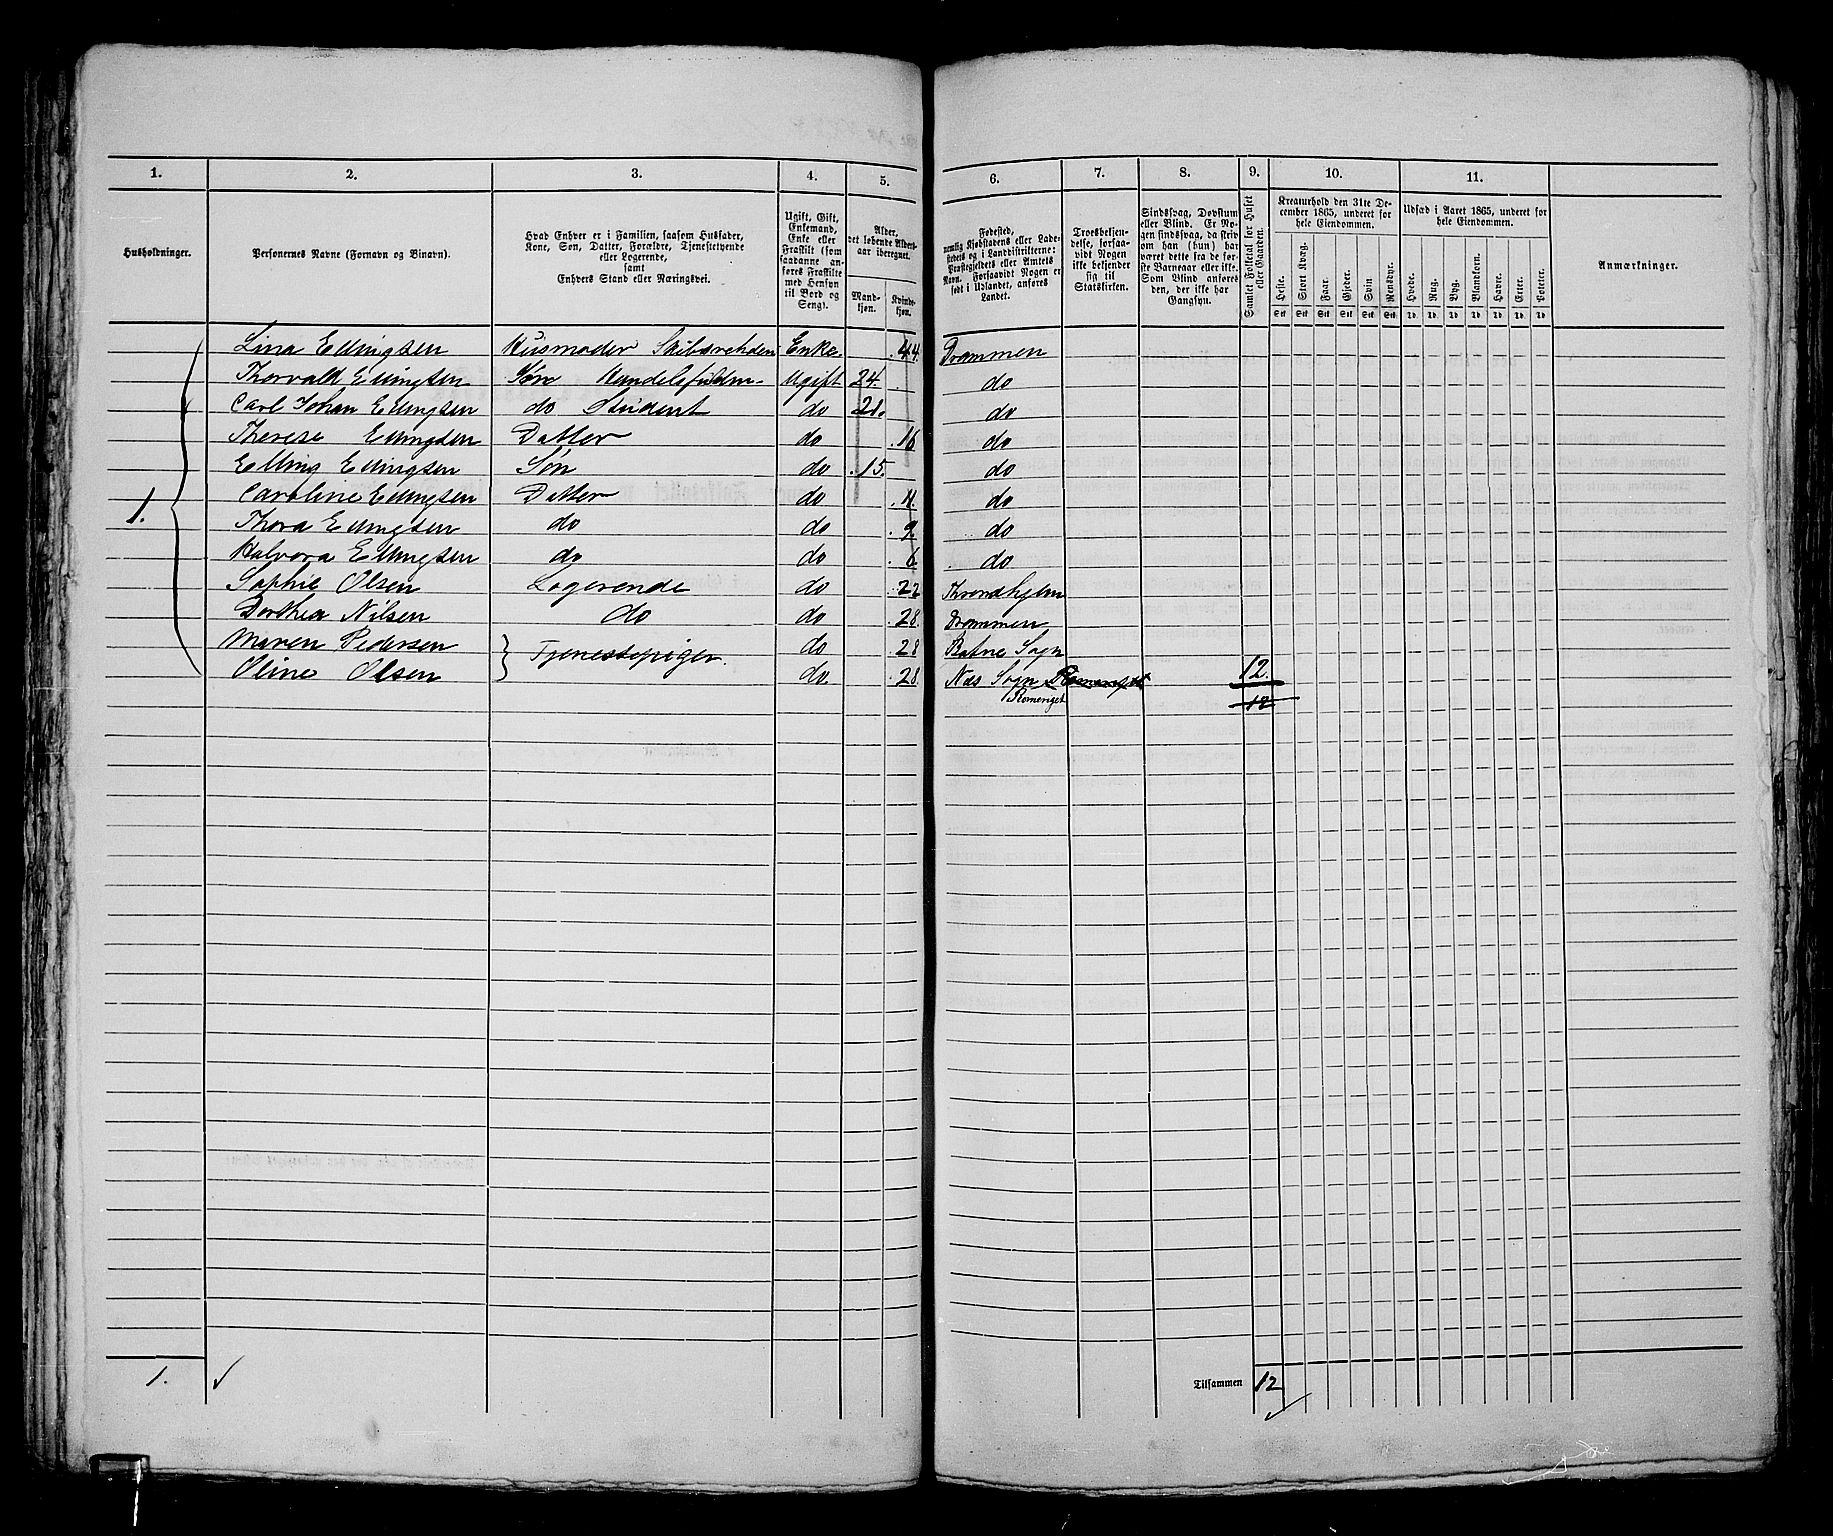 1. 2. 3. 4. 5. 6. 7. 8. 9. 10. 11.
Husholdninger.
Personernes Navne (Fornavn og Binavn).
Hvad Enhver er i Familien, saasom Husfader,
Kone, Søn, Datter, Forældre, Tjenestetyende
eller Logerende,
samt
Enhvers Stand eller Næringsvei.
Ugift, Gift,
Enkemand,
Enke eller
Fraskilt (som
saadanne an-
føres Fraskilte
med Hensyn
til Bord og
Seng).
Alder,
det løbende Alders-
aar iberegnet.
Mand-
kjøn.
Kvinde-
kjøn.
Fødested,
nemlig Kjøbstadens eller Lade-
stedets og i Landdistrikterne:
Præstegjeldets eller Amtets
Navn. Forsaavidt Nogen er
født i Udlandet, anføres
Landet.
Troesbekjen-
delse, forsaa-
vidt Nogen
ikke bekjender
sig til
Statskirken.
Sindssvag, Døvstum
eller Blind. Er No-
gen sindssvag, da skriv
om han (hun) har
været dette fra de før-
ste Barneaar eller ikke.
Som Blind anføres
den, der ikke har
Gangsyn.
Samlet Folketal for Huset
eller Gaarden.
Kreaturhold den 31te De-
cember 1865, underet for
hele Eiendommen.
Heste. Stort Kvæg. Faar. Gjeder. Svin Rensdyr.
Stk Stk Stk Stk Stk Stk
Udsæd i Aaret 1865, underet for
hele Eiendommen.
Hvede. Rug. Byg. Blandkorn. Havre. Erter. Poteter.
Td. Td. Td. Td. Td. Td. Td.
Anmærkninger.
1.
Lina Ellingsen Husmoder Enke. 44. Drammen
Thorvald Ellingsen Søn Handelsfuldm. Ugift 24. do
Carl Johan Ellingsen do Student do 21. do
Therese Ellingsen Datter do 16 do
Elling Ellingsen Søn do 15. do
Caroline Ellingsen Datter do 11. do
Thora Ellingsen do do 9 do
Halvora Ellingsen do do 6 do
Sophie Olsen Logerende do 22 Throndhjem
Dorthea Nilsen do do 28. Drammen
Maren Pedersen Tjenestepiger. do 28 Sogn
Oline Olsen do 28 Næs Sogn Romeriget 12.
Romeriget 12
1. Tilsammen 12